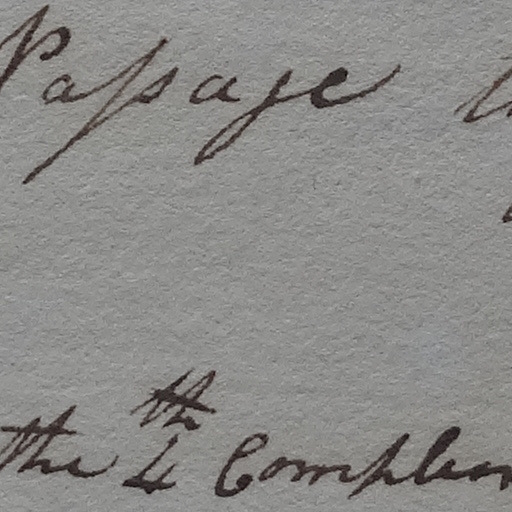 Paſsage
the 4th Complem